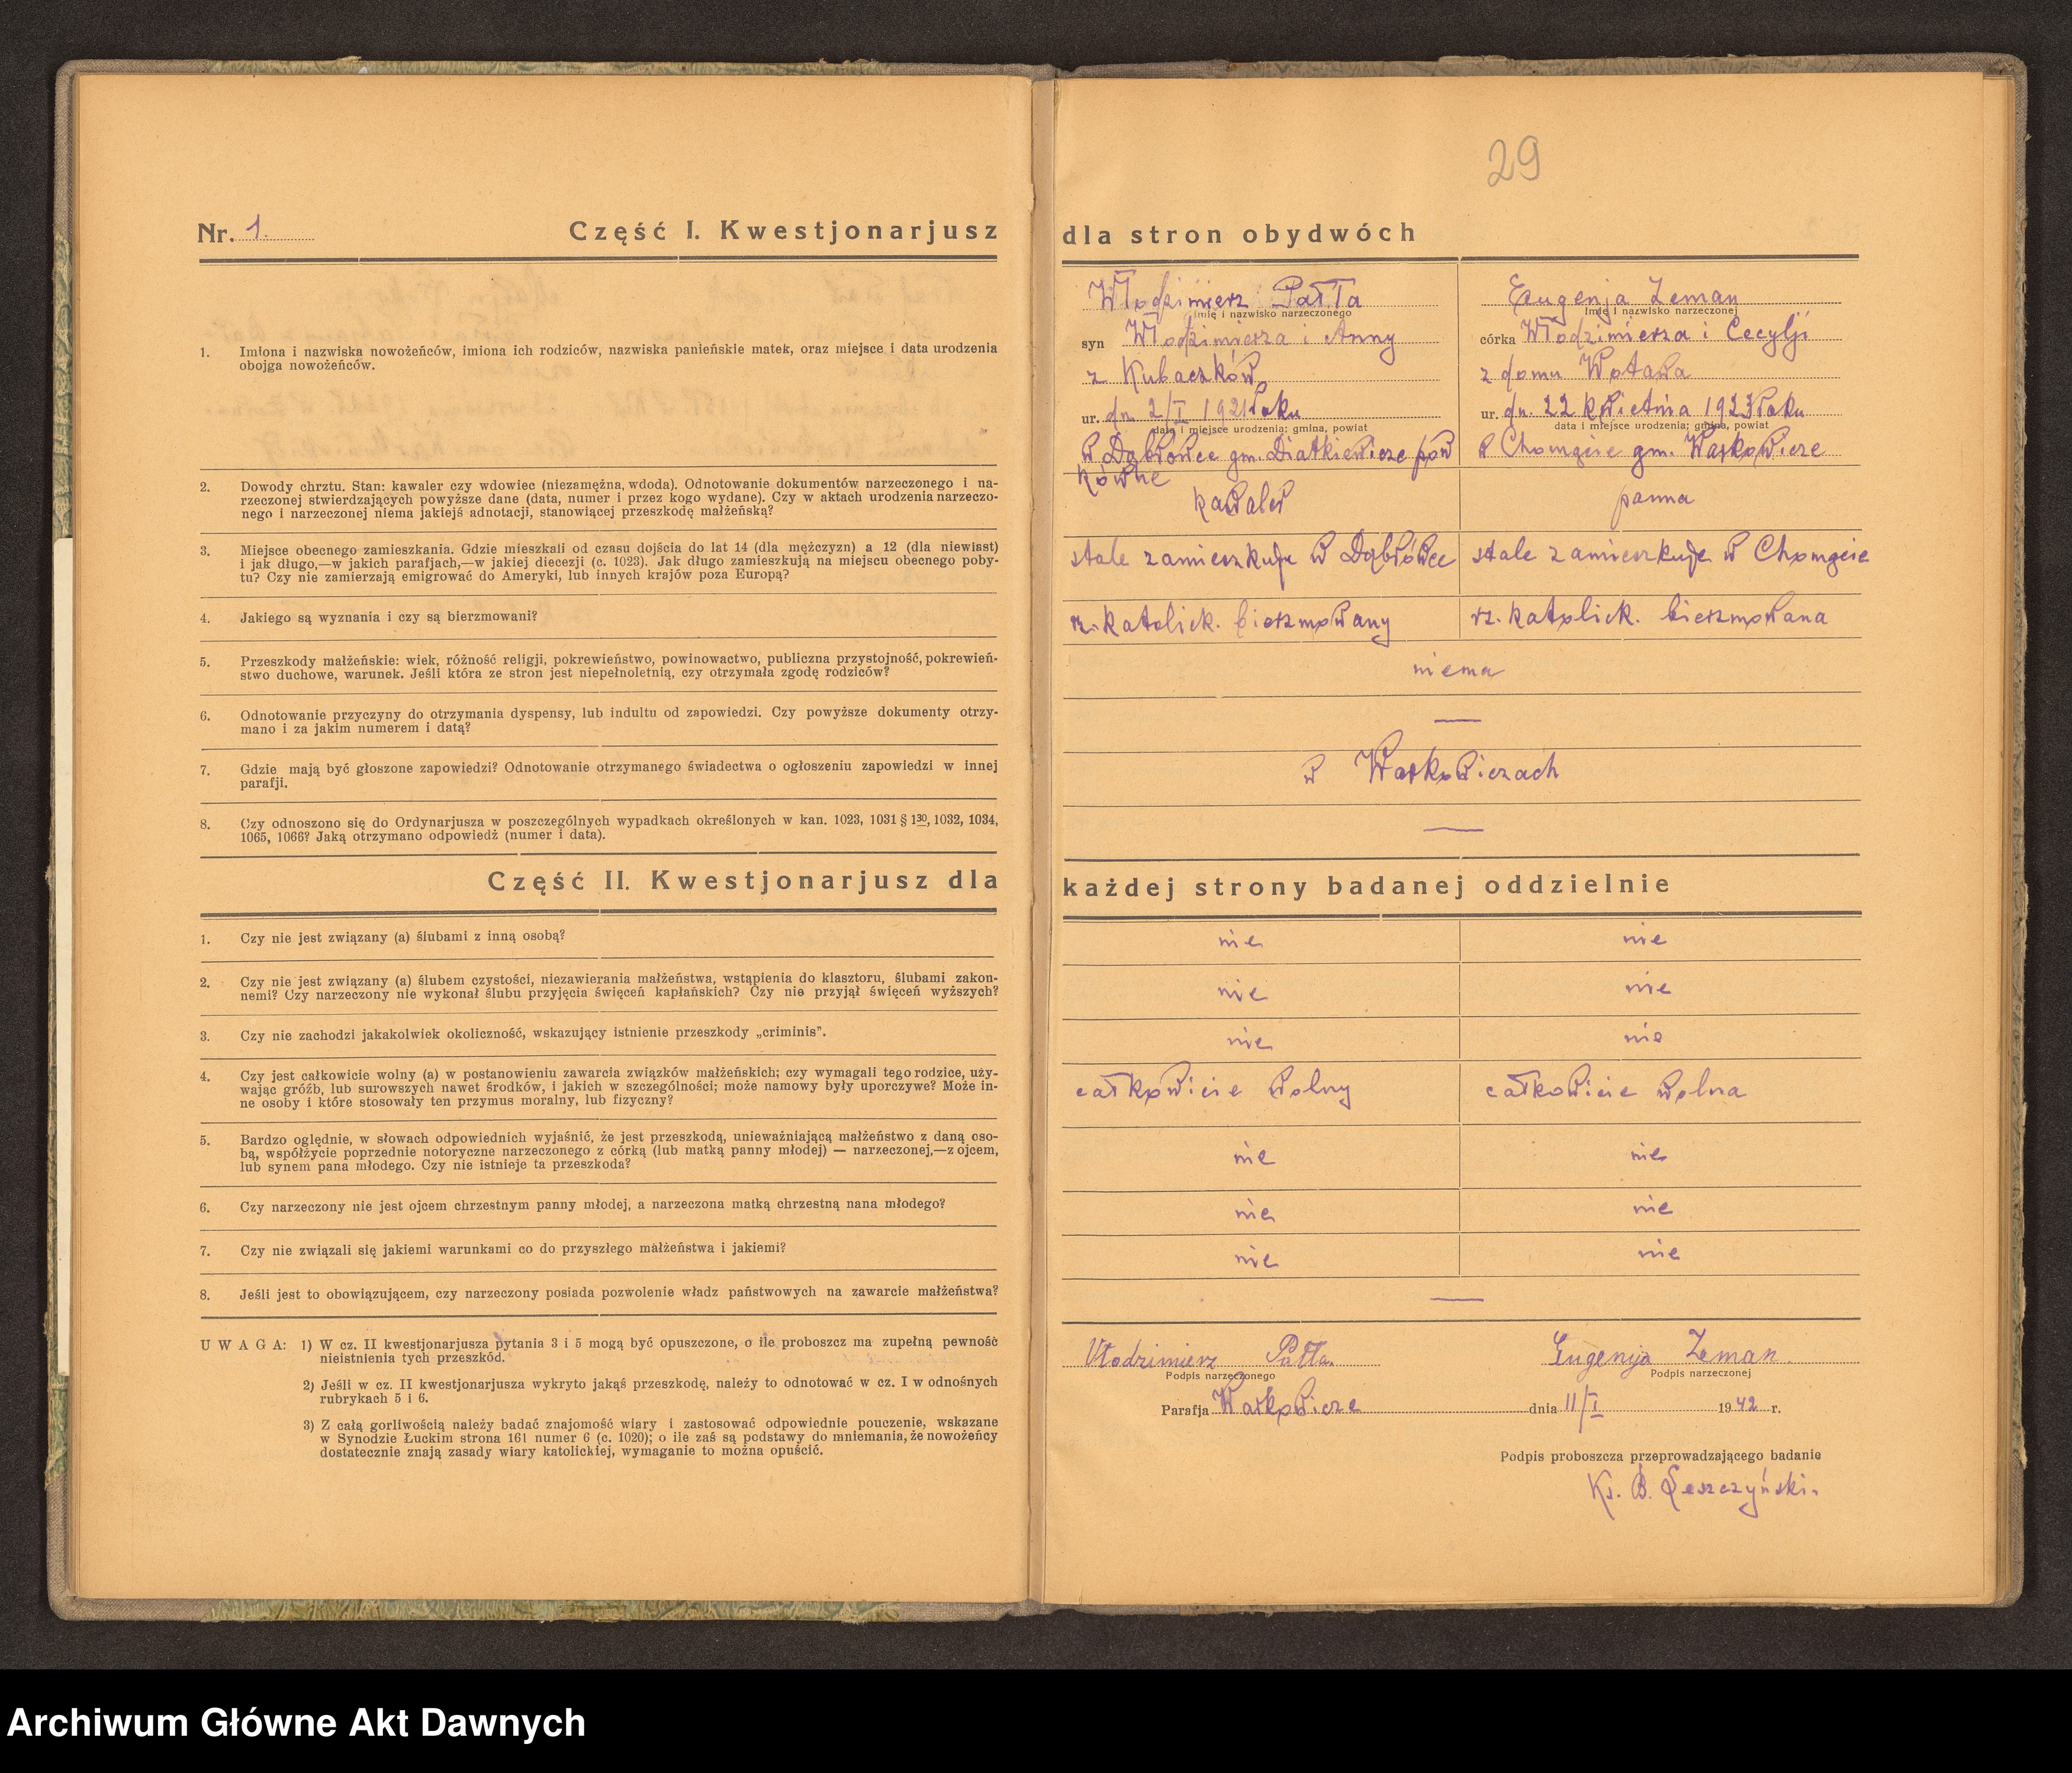 29
Nr. 1.
Część I. Kwestjonarjusz dla stron obydwóch
1. Imiona i nazwiska nowożeńców, imiona ich rodziców, nazwiska panieńskie matek, oraz miejsce i data urodzenia
obojga nowożeńców.
Włodzimierz Patła
Imię i nazwisko narzeczonego
syn Włodzimierza i Anny
z Kubaczków
ur. dn. 2/I 1921 roku
data i miejsce urodzenia; gmina, powiat
w Dąbrowce gm. Diatkiewicze pow
Równe
Eugenja Zeman
Imię i nazwisko narzeczonej
córka Włodzimierza i Cecylji
z domu Wotawa
ur. dn. 22 kwietnia 1923 roku
data i miejsce urodzenia; gmina, powiat
w Chomgcie gm. Warkowicze
2. Dowody chrztu. Stan: kawaler czy wdowiec (niezamężna, wdoda). Odnotowanie dokumentów narzeczonego i na-
rzeczonej stwierdzających powyższe dane (data, numer i przez kogo wydane). Czy w aktach urodzenia narzeczo-
nego i narzeczonej niema jakiejś adnotacji, stanowiącej przeszkodę małżeńską?
kawaler
panna
3. Miejsce obecnego zamieszkania. Gdzie mieszkali od czasu dojścia do lat 14 (dla mężczyzn) a 12 (dla niewiast)
i jak długo,—w jakich parafjach,—w jakiej diecezji (c. 1023). Jak długo zamieszkują na miejscu obecnego poby-
tu? Czy nie zamierzają emigrować do Ameryki, lub innych krajów poza Europą?
stale zamieszkuje w Dąbrówce
stale zamieszkuje w Chomgcie
4. Jakiego są wyznania i czy są bierzmowani?
rz. katolick. bierzmowany
rz. katolick. bierzmowana
5. Przeszkody małżeńskie: wiek, różność religji, pokrewieństwo, powinowactwo, publiczna przystojność, pokrewień-
stwo duchowe, warunek. Jeśli która ze stron jest niepełnoletnią, czy otrzymała zgodę rodziców?
niema
6. Odnotowanie przyczyny do otrzymania dyspensy, lub indultu od zapowiedzi. Czy powyższe dokumenty otrzy-
mano i za jakim numerem i datą?
—
7. Gdzie mają być głoszone zapowiedzi? Odnotowanie otrzymanego świadectwa o ogłoszeniu zapowiedzi w innej
parafji.
w Warkowiczach
8. Czy odnoszono się do Ordynarjusza w poszczególnych wypadkach określonych w kan. 1023, 1031 § 1³⁰, 1032, 1034,
1065, 1066? Jaką otrzymano odpowiedź (numer i data).
—
Część II. Kwestjonarjusz dla każdej strony badanej oddzielnie
1. Czy nie jest związany (a) ślubami z inną osobą?
nie
nie
2. Czy nie jest związany (a) ślubem czystości, niezawierania małżeństwa, wstąpienia do klasztoru, ślubami zakon-
nemi? Czy narzeczony nie wykonał ślubu przyjęcia święceń kapłańskich? Czy nie przyjął święceń wyższych?
nie
nie
3. Czy nie zachodzi jakakolwiek okoliczność, wskazujący istnienie przeszkody „criminis".
nie
nie
4. Czy jest całkowicie wolny (a) w postanowieniu zawarcia związków małżeńskich; czy wymagali tego rodzice, uży-
wając gróźb, lub surowszych nawet środków, i jakich w szczególności; może namowy były uporczywe? Może in-
ne osoby i które stosowały ten przymus moralny, lub fizyczny?
całkowicie wolny
całkowicie wolna
5. Bardzo oględnie, w słowach odpowiednich wyjaśnić, że jest przeszkodą, unieważniającą małżeństwo z daną oso-
bą, współżycie poprzednie notoryczne narzeczonego z córką (lub matką panny młodej) — narzeczonej,—z ojcem,
lub synem pana młodego. Czy nie istnieje ta przeszkoda?
nie
nie
6. Czy narzeczony nie jest ojcem chrzestnym panny młodej, a narzeczona matką chrzestną nana młodego?
nie
nie
7. Czy nie związali się jakiemi warunkami co do przyszłego małżeństwa i jakiemi?
nie
nie
8. Jeśli jest to obowiązującem, czy narzeczony posiada pozwolenie władz państwowych na zawarcie małżeństwa?
—
UWAGA: 1) W cz. II kwestjonarjusza pytania 3 i 5 mogą być opuszczone, o ile proboszcz ma zupełną pewność
nieistnienia tych przeszkód.
2) Jeśli w cz. II kwestjonarjusza wykryto jakąś przeszkodę, należy to odnotować w cz. I w odnośnych
rubrykach 5 i 6.
3) Z całą gorliwością należy badać znajomość wiary i zastosować odpowiednie pouczenie, wskazane
w Synodzie Łuckim strona 161 numer 6 (c. 1020); o ile zaś są podstawy do mniemania, że nowożeńcy
dostatecznie znają zasady wiary katolickiej, wymaganie to można opuścić.
Włodzimierz Patła
Podpis narzeczonego
Eugenja Zeman.
Podpis narzeczonej
Parafja Warkowicze dnia 11/I 1942 r.
Podpis proboszcza przeprowadzającego badanie
Ks. B. Leszczyński.
Archiwum Główne Akt Dawnych